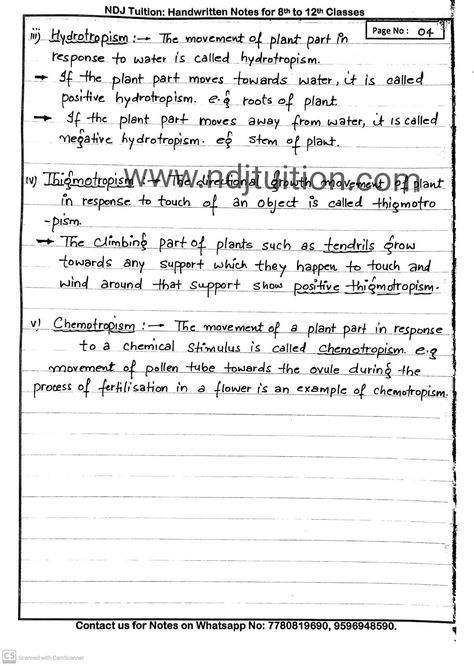 NDJ Tuition: Handwritten Notes for 8th to 12th Classes
Page No: 04
iii) Hydrotropism :→ The movement of plant part in
response to water is called hydrotropism.
→ If the plant part moves towards water, it is called
positive hydrotropism. e.g roots of plant
→ If the plant part moves away from water, it is called
negative hydrotropism. eg stem of plant.
www.ndjtuition.com
iv) Thigmotropism → The directional growth movement of plant
in response to touch of an object is called thigmotro
-pism.
→ The climbing part of plants such as tendrils grow
towards any support which they happen to touch and
wind around that support show positive thigmotropism.
v) Chemotropism :→ The movement of a plant part in response
to a chemical stimulus is called chemotropism. e.g
movement of pollen tube towards the ovule during the
process of fertilisation in a flower is an example of chemotropism.
Contact us for Notes on Whatsapp No: 7780819690, 9596948590.
CS Scanned with CamScanner